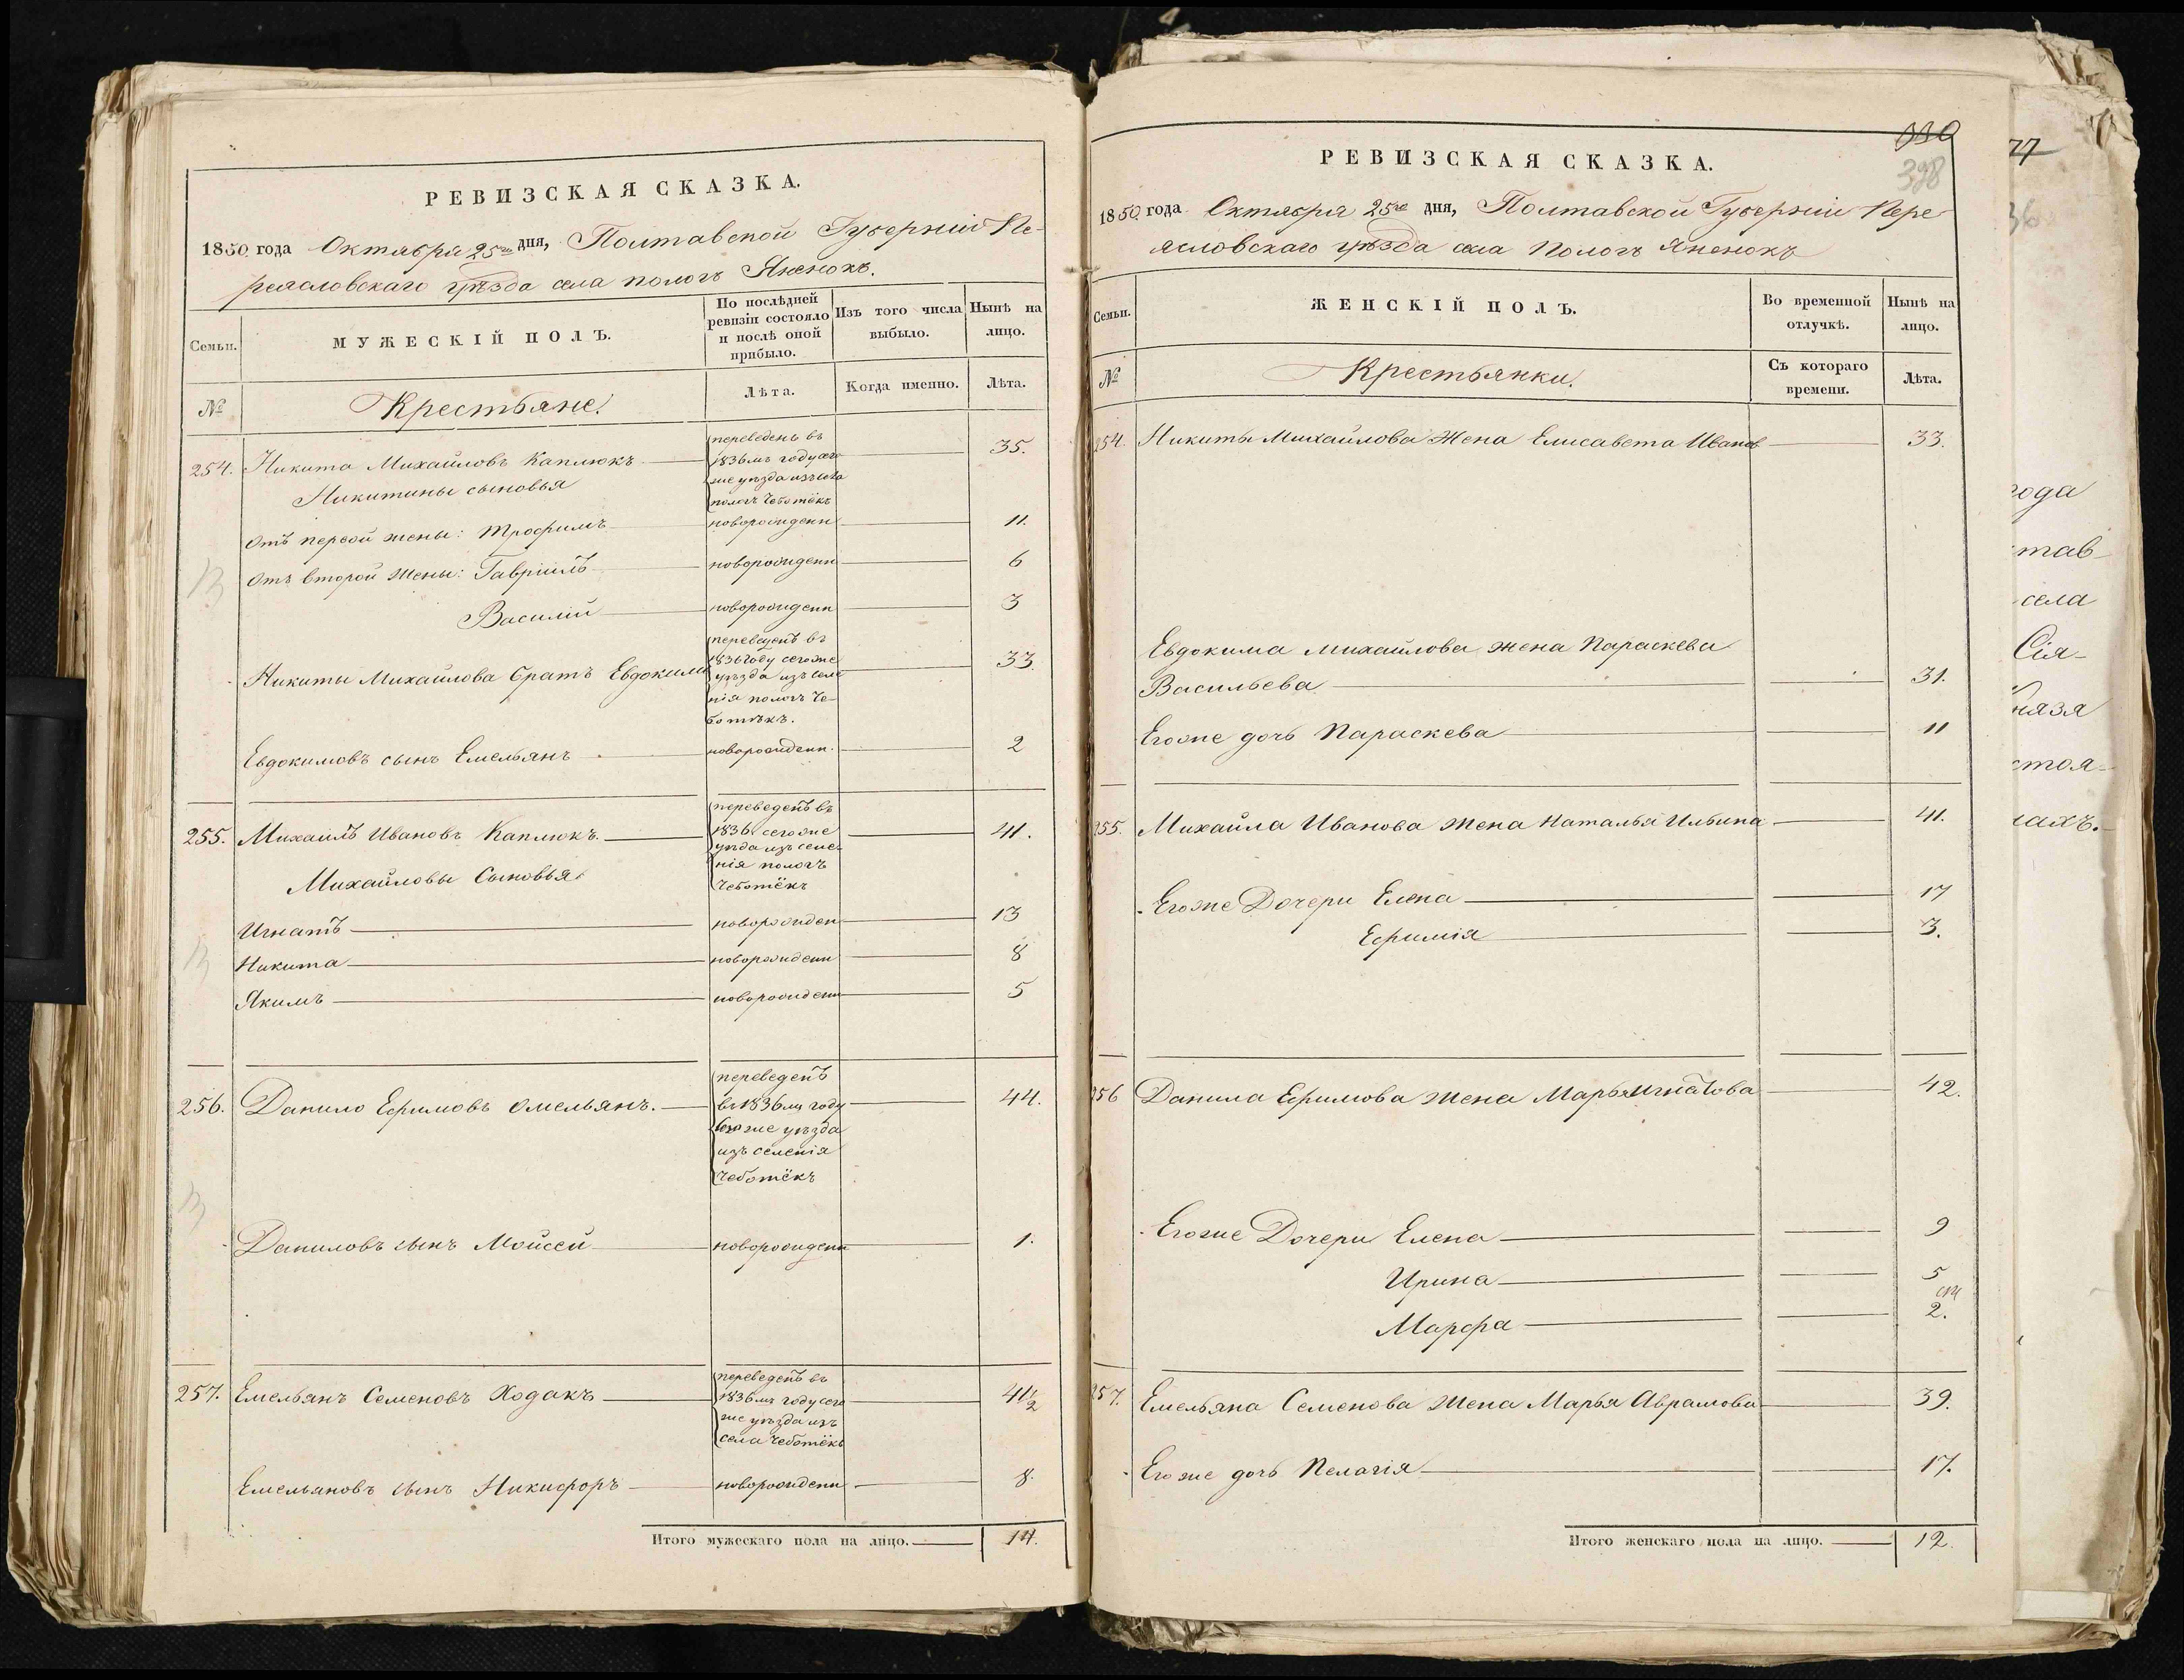 РЕВИЗСКАЯ СКАЗКА.
1850 года Октября 25го дня, Полтавской Губерніи Пе-
реяславскаго уѣзда села пологъ Яненокъ.
Семьи.
МУЖЕСКІЙ ПОЛЪ.
По послѣдней
ревизіи состояло
и послѣ оной
прибыло.
Изъ того числа
выбыло.
Нынѣ на
лицо.
№
Крестьяне.
Лѣта.
Когда именно.
Лѣта.
254. Никита Михайловъ Каплюкъ
переведенъ въ
1836мъ году сего
же уѣзда изъ села
пологъ Чеботёкъ
35.
Никитины сыновья
Отъ первой жены: Трофимъ новорожденн 11.
Отъ второй жены: Гавріилъ новорожденн 6
Василій новорожденн 3
Никиты Михайлова братъ Евдокимъ
переведенъ въ
1836 году сегоже
уѣзда изъ селе
нія пологъ Че-
ботѣкъ.
33.
Евдокимовъ сынъ Емельянъ новорожденн. 2
255. Михаилъ Ивановъ Каплюкъ.
переведенъ въ
1836 сегоже
уѣзда изъ селе-
нія пологъ
Чеботёкъ
41.
Михайловы Сыновья:
Игнатъ новорожден 13
Никита новорожденн 8
Якимъ новорожденн 5
256. Данило Ефимовъ Омельянъ.
переведенъ
въ 1836мъ году
сего же уѣзда
изъ селенія
Чеботёкъ
44.
Даниловъ сынъ Мойсей новорожденн 1.
257. Емельянъ Семеновъ Ходакъ
переведенъ въ
1836мъ году сего
же уѣзда изъ
села Чеботёкъ
41½
Емельяновъ сынъ Никифоръ новорожденн 8.
Итого мужескаго пола на лицо. 14.
330
398
РЕВИЗСКАЯ СКАЗКА.
1850 года Октября 25го дня, Полтавской Губерніи Пере-
ясловскаго уѣзда села Пологъ Яненокъ
Семьи.
ЖЕНСКІЙ ПОЛЪ.
Во временной
отлучкѣ.
Нынѣ на
лицо.
№
Крестьянки.
Съ котораго
времени.
Лѣта.
254. Никиты Михайлова Жена Елисавета Иванов 33.
Евдокима Михайлова жена Параскева
Васильева 31.
Егоже дочь Параскева 11
255. Михайла Иванова жена Наталья Ильина 41.
Егоже Дочери Елена 17
Ефимія 3.
256 Данила Ефимова жена Марья Игнатова 42.
Егоже Дочери Елена 9
Ирина 5
Марфа 2.
257. Емельяна Семенова жена Марья Аврамова 39.
Егоже дочь Пелагія 17.
Итого женскаго пола на лицо. 12.
77
36
года
тав-
села
Сія-
нязя
стоя-
лахъ.